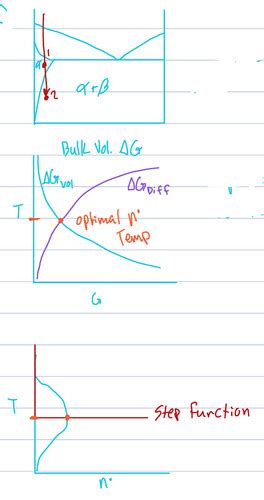 α
1
2
α+β
Bulk Vol. ΔG
ΔG_Vol
ΔG_Diff
T
optimal n•
Temp
G
T
Step function
n•